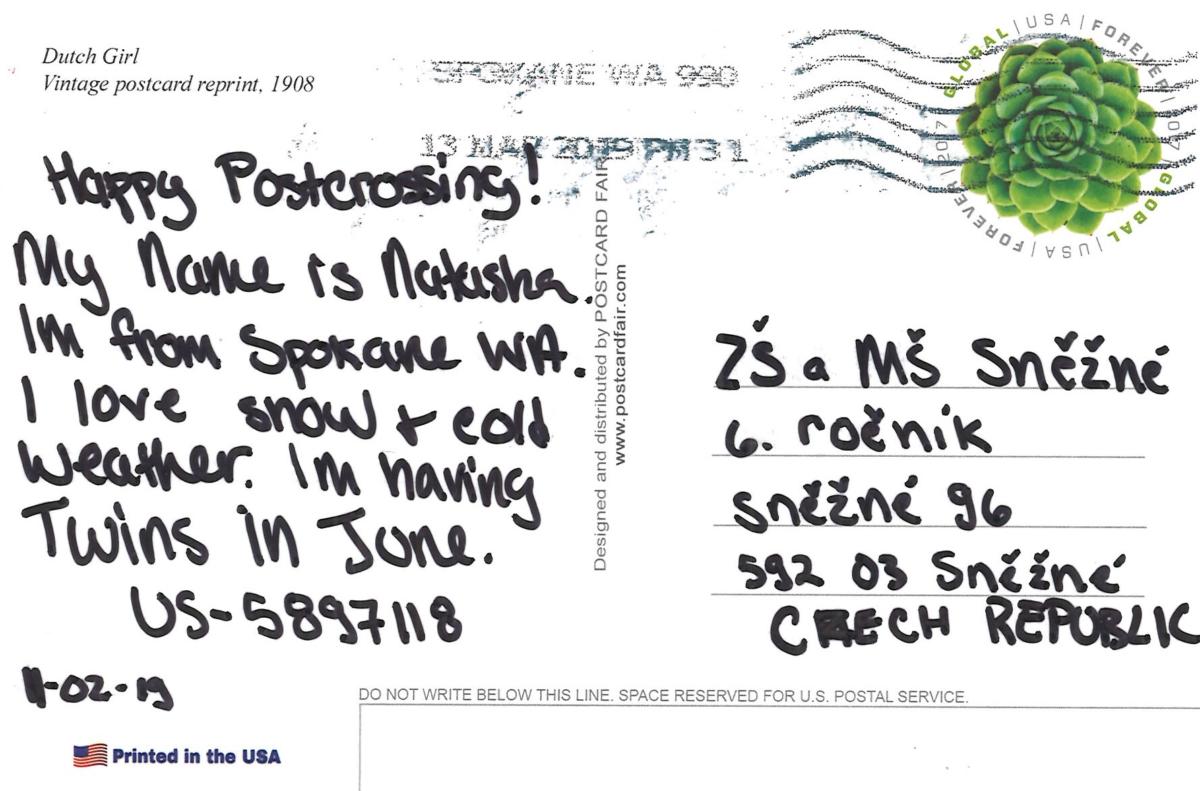 Dutch Girl
Vintage postcard reprint, 1908
SPOKANE WA 990
13 MAR 2019 PM 3 L
GLOBAL | USA | FOREVER | 2017 | GLOBAL | USA | FOREVER | 2017
Happy Postcrossing!
My Name is Natasha.
Im from Spokane WA.
I love snow + cold
weather. Im having
Twins in June.
US-5897118
11-02-19
Printed in the USA
Designed and distributed by POSTCARD FAIR
www.postcardfair.com
ZŠ a MŠ Sněžné
6. ročník
Sněžné 96
592 03 Sněžné
CZECH REPUBLIC
DO NOT WRITE BELOW THIS LINE. SPACE RESERVED FOR U.S. POSTAL SERVICE.